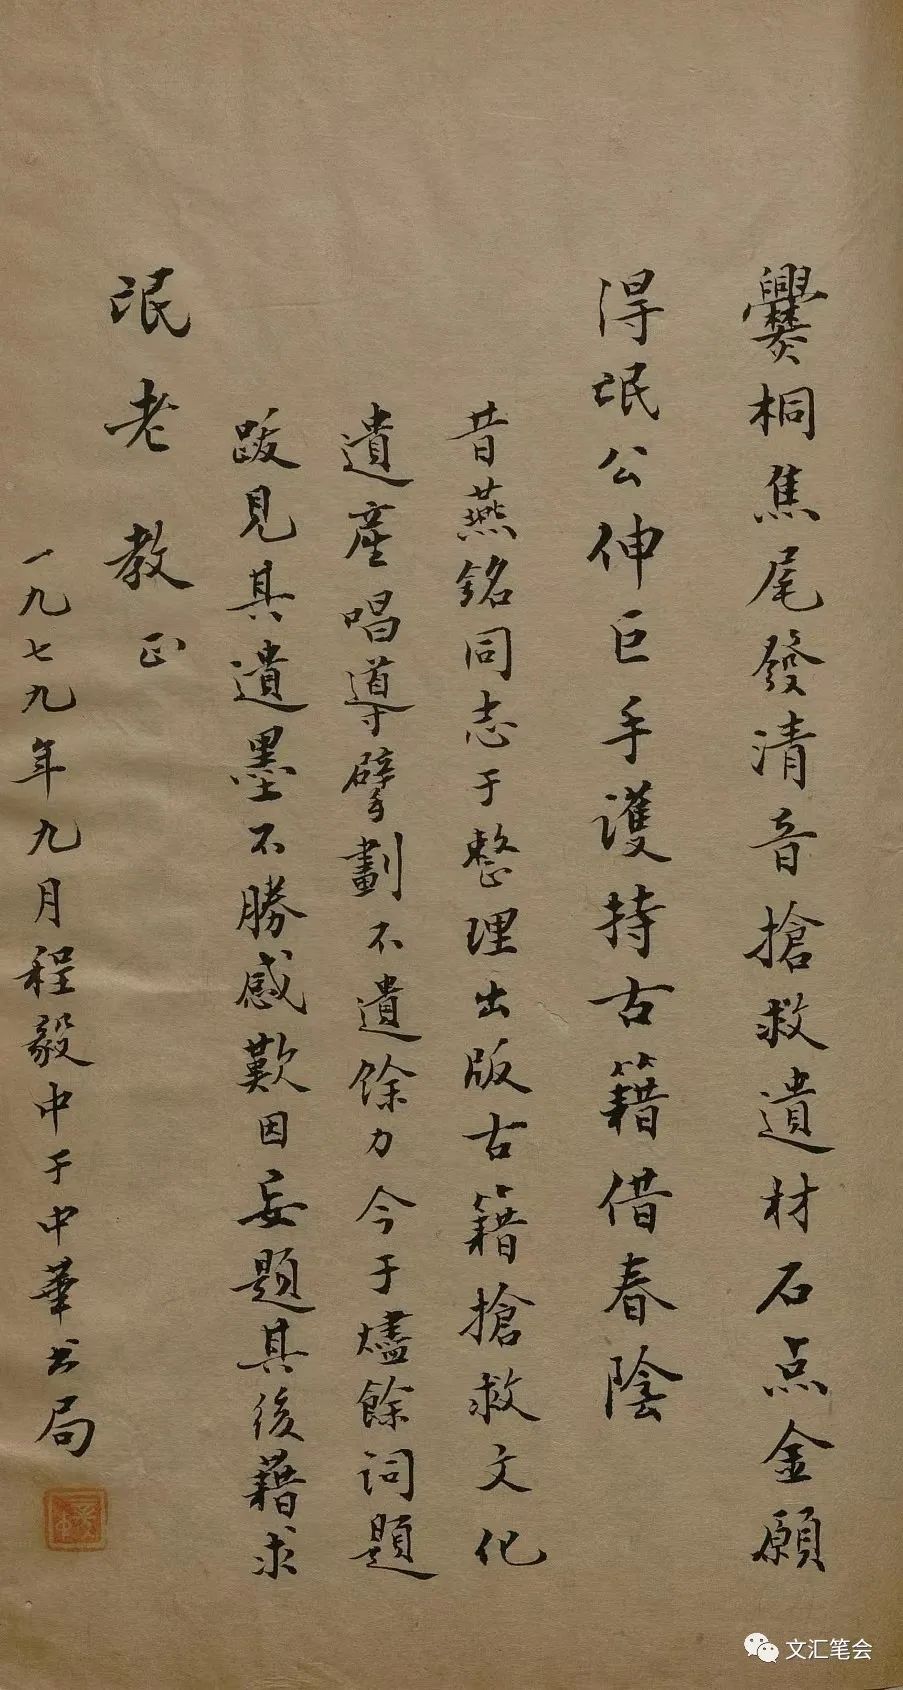 爨桐焦尾發清音搶救遺材石点金願
得氓公伸巨手護持古籍借春陰
昔燕銘同志于整理出版古籍搶救文化
遺產唱導擘劃不遺餘力今于燼餘词題
跋見其遺墨不勝感歎因妄題其後藉求
氓老教正
一九七九年九月程毅中于中華书局
文汇笔会